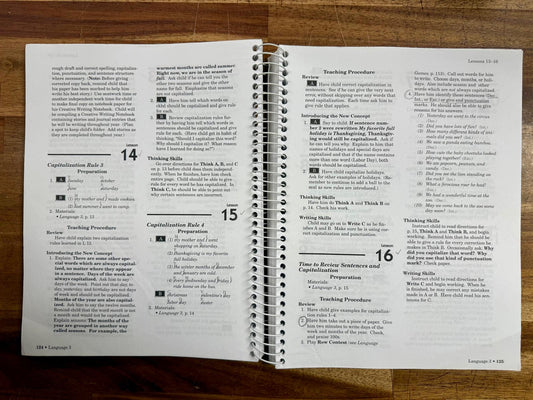 rough draft and correct spelling, capitaliza-
tion, punctuation, and sentence structure
where necessary. (Note: Before giving
corrected copy back, remind child that
his paper has been marked to help him
write his best story.) Use seatwork time or
another independent work time for child
to make final copy on notebook paper for
his Creative Writing Notebook. Child will
be compiling a Creative Writing Notebook
containing stories and journal entries that
he will be writing throughout this year. (Plan
a spot to keep child's folder. Add stories as
they are completed throughout year.)
Lesson
14
Capitalization Rule 3
Preparation
1. A
sunday october
june saturday
2. B
(1) my mother and I made cookies.
(2) last summer I went to camp.
3. Materials
• Language 3, p. 13
Teaching Procedure
Review
Have child explain two capitalization
rules learned in L 13.
Introducing the New Concept
1. Explain: There are some other spe-
cial words which are always capital-
ized, no matter where they appear
in a sentence. Days of the week are
always capitalized. Ask him to say
days of the week. Point out that day to-
day, yesterday, and birthday are not days
of week and should not be capitalized.
Months of the year are also capital-
ized. Ask him to say the twelve months.
Remind child that the word month is not
a month and would not be capitalized.
Explain seasons: The months of the
year are grouped in another way
called seasons. For example, the
124 • Language 3
warmest months are called summer.
Right now, we are in the season of
fall. Ask child if he can tell you the
other two seasons and give the other
name for fall. Emphasize that seasons
are not capitalized.
2. A Have him tell which words on
chart should be capitalized and give rule
for each.
3. B Review capitalization rules fur-
ther by having him tell which words in
sentences should be capitalized and give
rule for each. (Have child get in habit of
thinking, "Should I capitalize this word?
Why must I capitalize it? What reason
have I learned for doing so?")
Thinking Skills
Go over directions for Think A, B, and C
on p. 13 before child does them indepen-
dently. When he finishes, have him check
entire page. Child should be able to give
rule for every word he has capitalized. In
Think C, he should be able to point out
why certain sentences are incorrect.
Lesson
15
Capitalization Rule 4
Preparation
1. A (1) my mother and I went
shopping on Saturday.
(2) thanksgiving is my favorite
fall holiday.
(3) the winter months of december
and january are cold.
(4) every wednesday and friday i
ride home on the bus.
2. B
christmas valentine's day
labor day easter
3. Materials
• Language 3, p. 14
Lessons 13–16
Teaching Procedure
Review
A Have child correct capitalization in
sentences. See if he can give the very next
error, without skipping over any words that
need capitalization. Each time ask him to
give rule that applies.
Introducing the New Concept
1. A Say to child: If sentence num-
ber 2 were rewritten My favorite fall
holiday is Thanksgiving, Thanksgiv-
ing would still be capitalized. Ask if
he can tell you why. Explain to him that
names of holidays and special days are
capitalized and that if the name contains
more than one word (Labor Day), both
words should be capitalized.
2. B Have child capitalize holidays.
Ask for other examples of holidays. (Re-
member to continue to add a ball to the
seal as new rules are introduced.)
Thinking Skills
Have him do Think A and Think B on
p. 14. Check his work.
Writing Skills
Child may go on to Write C as he fin-
ishes A and B. Make sure he is using cor-
rect capitalization and punctuation.
Lesson
16
Time to Review Sentences and
Capitalization
Preparation
Materials
• Language 3, p. 15
Teaching Procedure
Review
1. Have child give examples for capitaliza-
tion rules 1–4.
2. Have him take out a piece of paper. Give
him two minutes to write days of the
week and the months of the year. Check,
and praise 100s.
3. Play Row Contest (see Language
Games, p. 153). Call out words for him
to write. Choose days, months, or holi-
days. Also include season and other
words which are not always capitalized.
4. Have him identify these sentences (Dec.,
Int., or Exc.) or give end punctuation
marks. He should also be able to give
reasons for his answers.
(1) Yesterday we went to the circus
(Dec.)
(2) Did you have lots of fun? (Int.)
(3) How many different kinds of ani-
mals did you see? (Int.)
(4) We saw a panda eating bamboo.
(Dec.)
(5) How cute the baby chimpanzee looked
playing together! (Exc.)
(6) We ate popcorn, peanuts, and
candy. (Dec.)
(7) Did you see the lion standing on
the rock? (Int.)
(8) What a ferocious roar he had!
(Exc.)
(9) We had a wonderful time at the
zoo. (Dec.)
(10) May we come back to the zoo some
day soon? (Int.)
Thinking Skills
Instruct child to read directions for
p. 15, Think A and Think B, and begin
working. Remind him that he should be
able to give a rule for every correction he
makes in Think B. Occasionally ask, Why
did you capitalize that word? Why
did you use that kind of punctuation
mark? Check paper.
Writing Skills
Instruct child to read directions for
Write C and begin working. When he
is finished, he may correct any mistakes
made in A or B. Have child read his sen-
tences for C.
Language 3 • 125